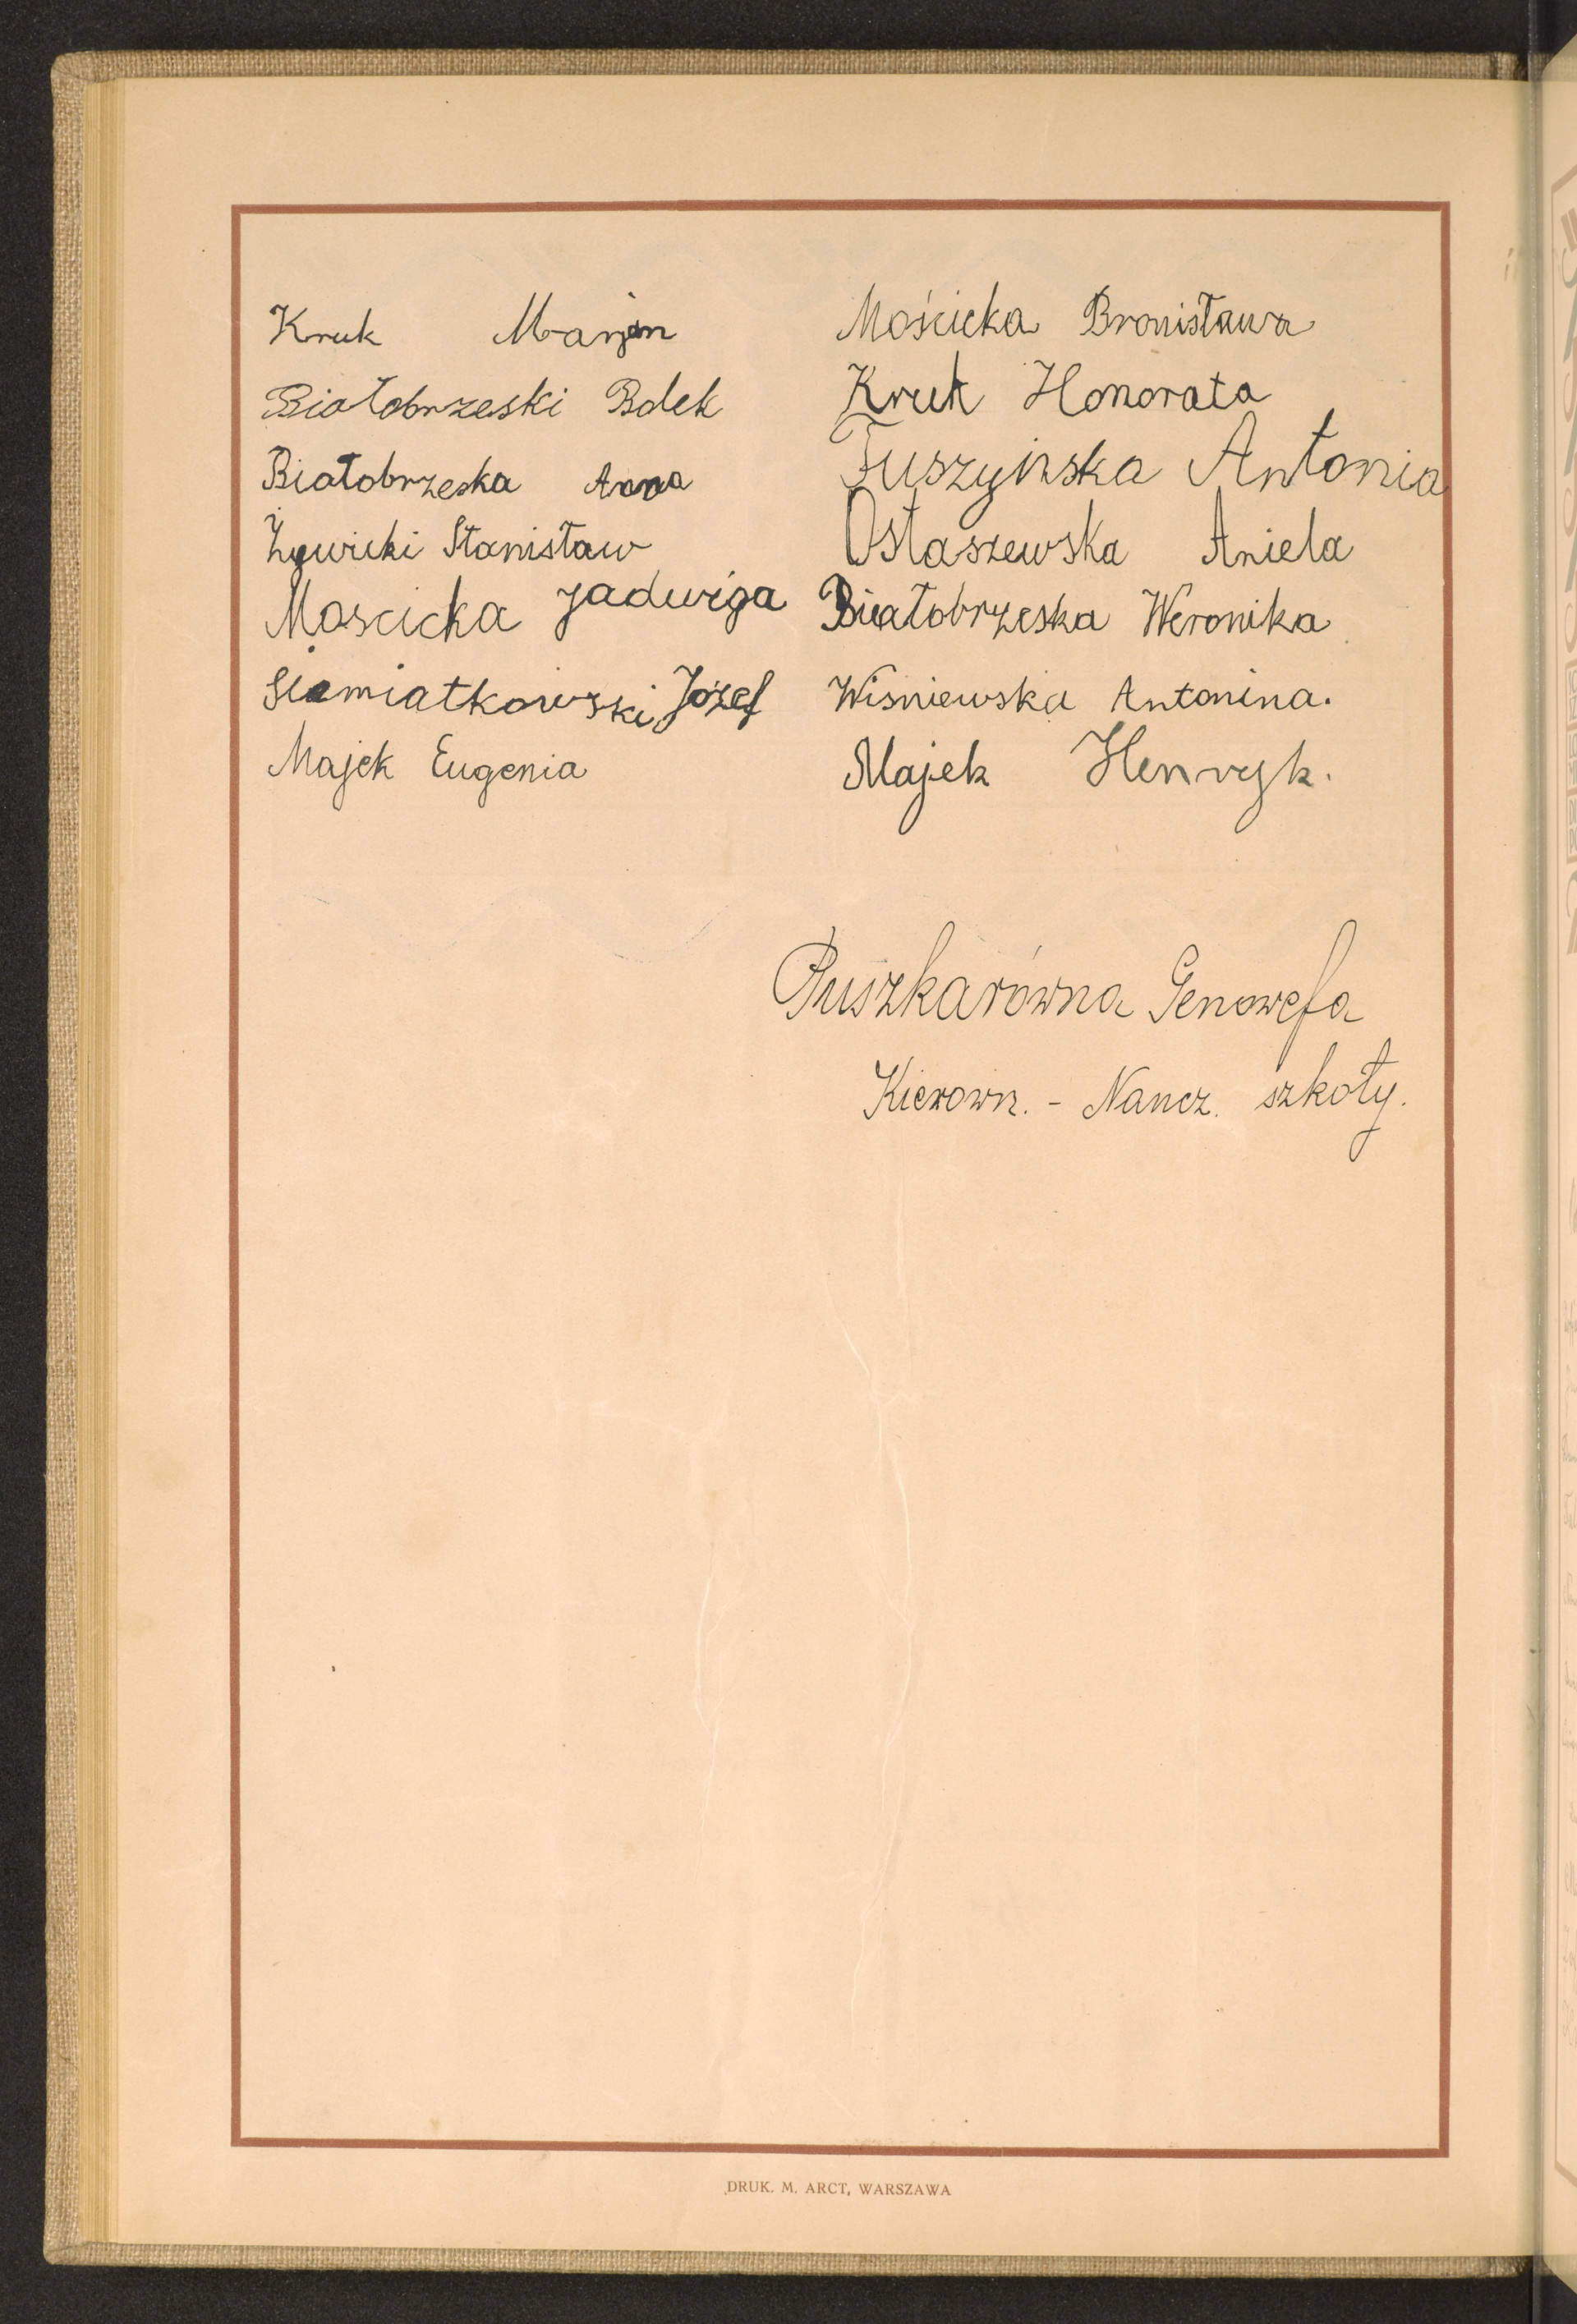 Kruk Marjan
Białobrzeski Bolek
Białobrzeska Anna
Żywicki Stanisław
Moscicka Jadwiga
Siemiatkowski Józef
Majek Eugenia
Mościcka Bronisława
Kruk Honorata
Tuszyńska Antonia
Ostaszewska Aniela
Białobrzeska Weronika
Wisniewska Antonina.
Majek Henryk.
Puszkarówna Genowefa
Kierown. - Naucz. szkoły.
DRUK. M. ARCT, WARSZAWA